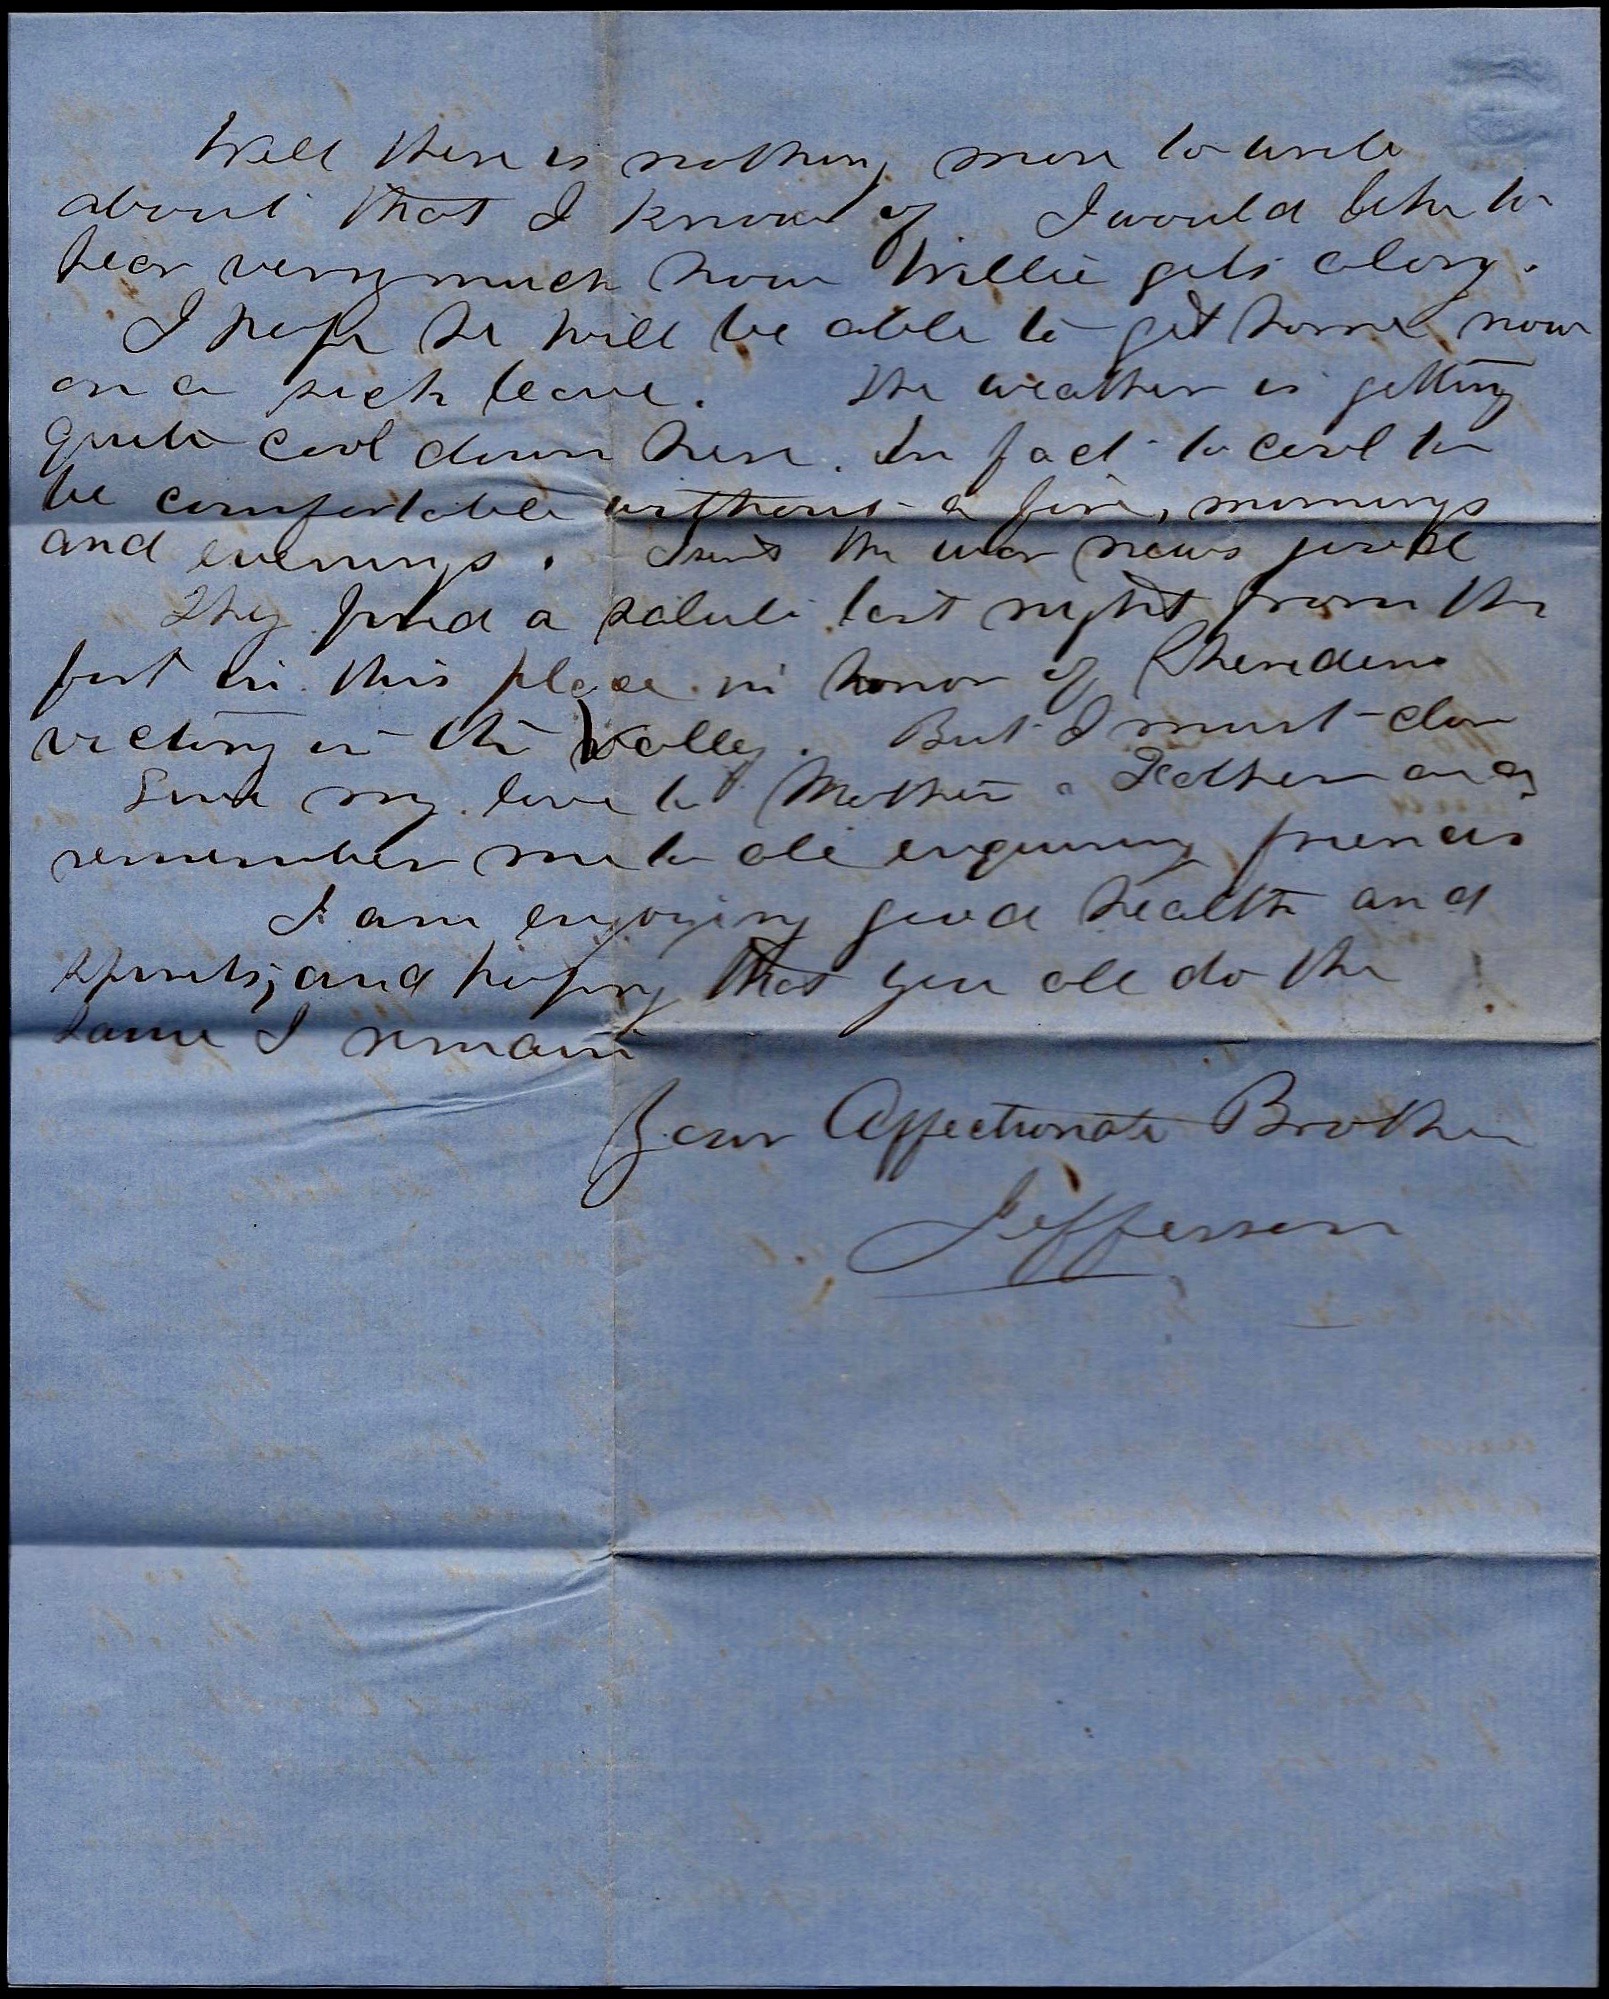 Well there is nothing more to write
about that I know of I would like to
hear very much how Willie gets along.
I hope he will be able to get home now
on a sick leave. The weather is getting
quite cool down here. In fact to cool to
be comfortable without a fire, mornings
and evenings. Isent the war news good
They fired a salute last night from the
fort in this place in honor of Sheridens
victory in the Valley. But I must close
Give my love to Mother & Father and
remember me to all enquiring friends
I am enjoying good health and
spirits, and hoping that you all do the
same I remain
Your Affectionate Brother
Jefferson